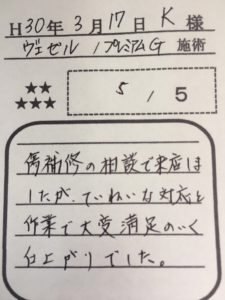 H30年 3月 17日 K 様
ヴェゼル / プレミアムG 施術
★★
★★★
5 / 5
傷補修の相談で来店しま
したが、ていねいな対応と
作業で大変満足のいく
仕上がりでした。